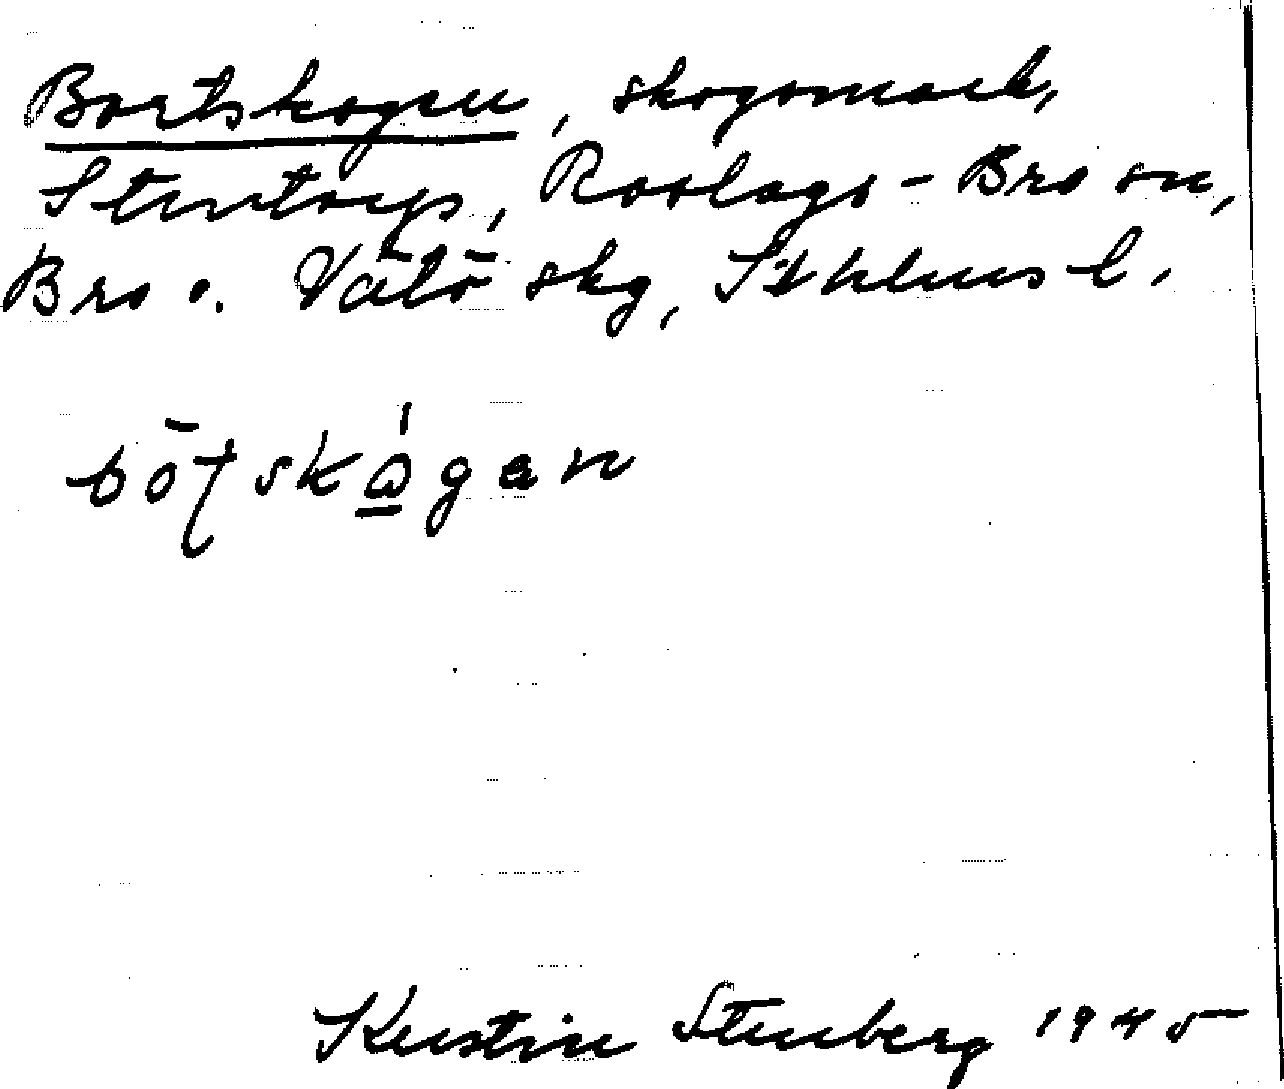 Bortskogen, skogsmark,
Stentorp, Roslags-Bro sn,
Bro o. Vätö skg, Sthlms l.
Kerstin Stenberg 1945